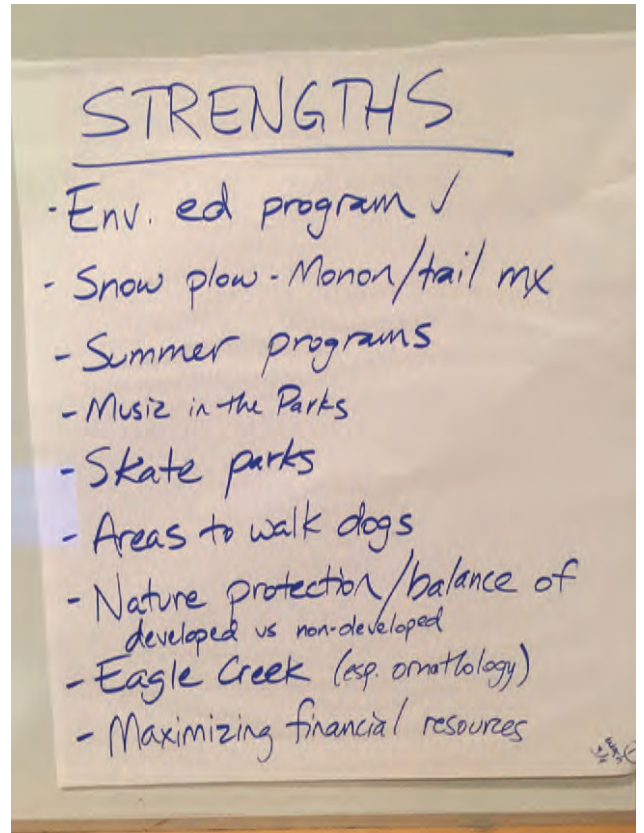 STRENGTHS
- Env. ed program ✓
- Snow plow - Monon/trail mx
- Summer programs
- Music in the Parks
- Skate parks
- Areas to walk dogs
- Nature protection/balance of
developed vs non-developed
- Eagle Creek (esp. ornathology)
- Maximizing financial resources